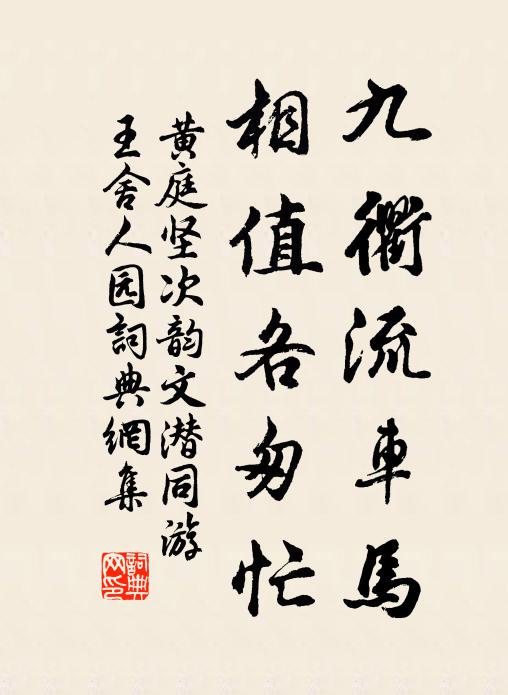 九衢流車馬
相值各匆忙
黄庭坚次韵文潜同游
王舍人园詞典網集
詞典网印